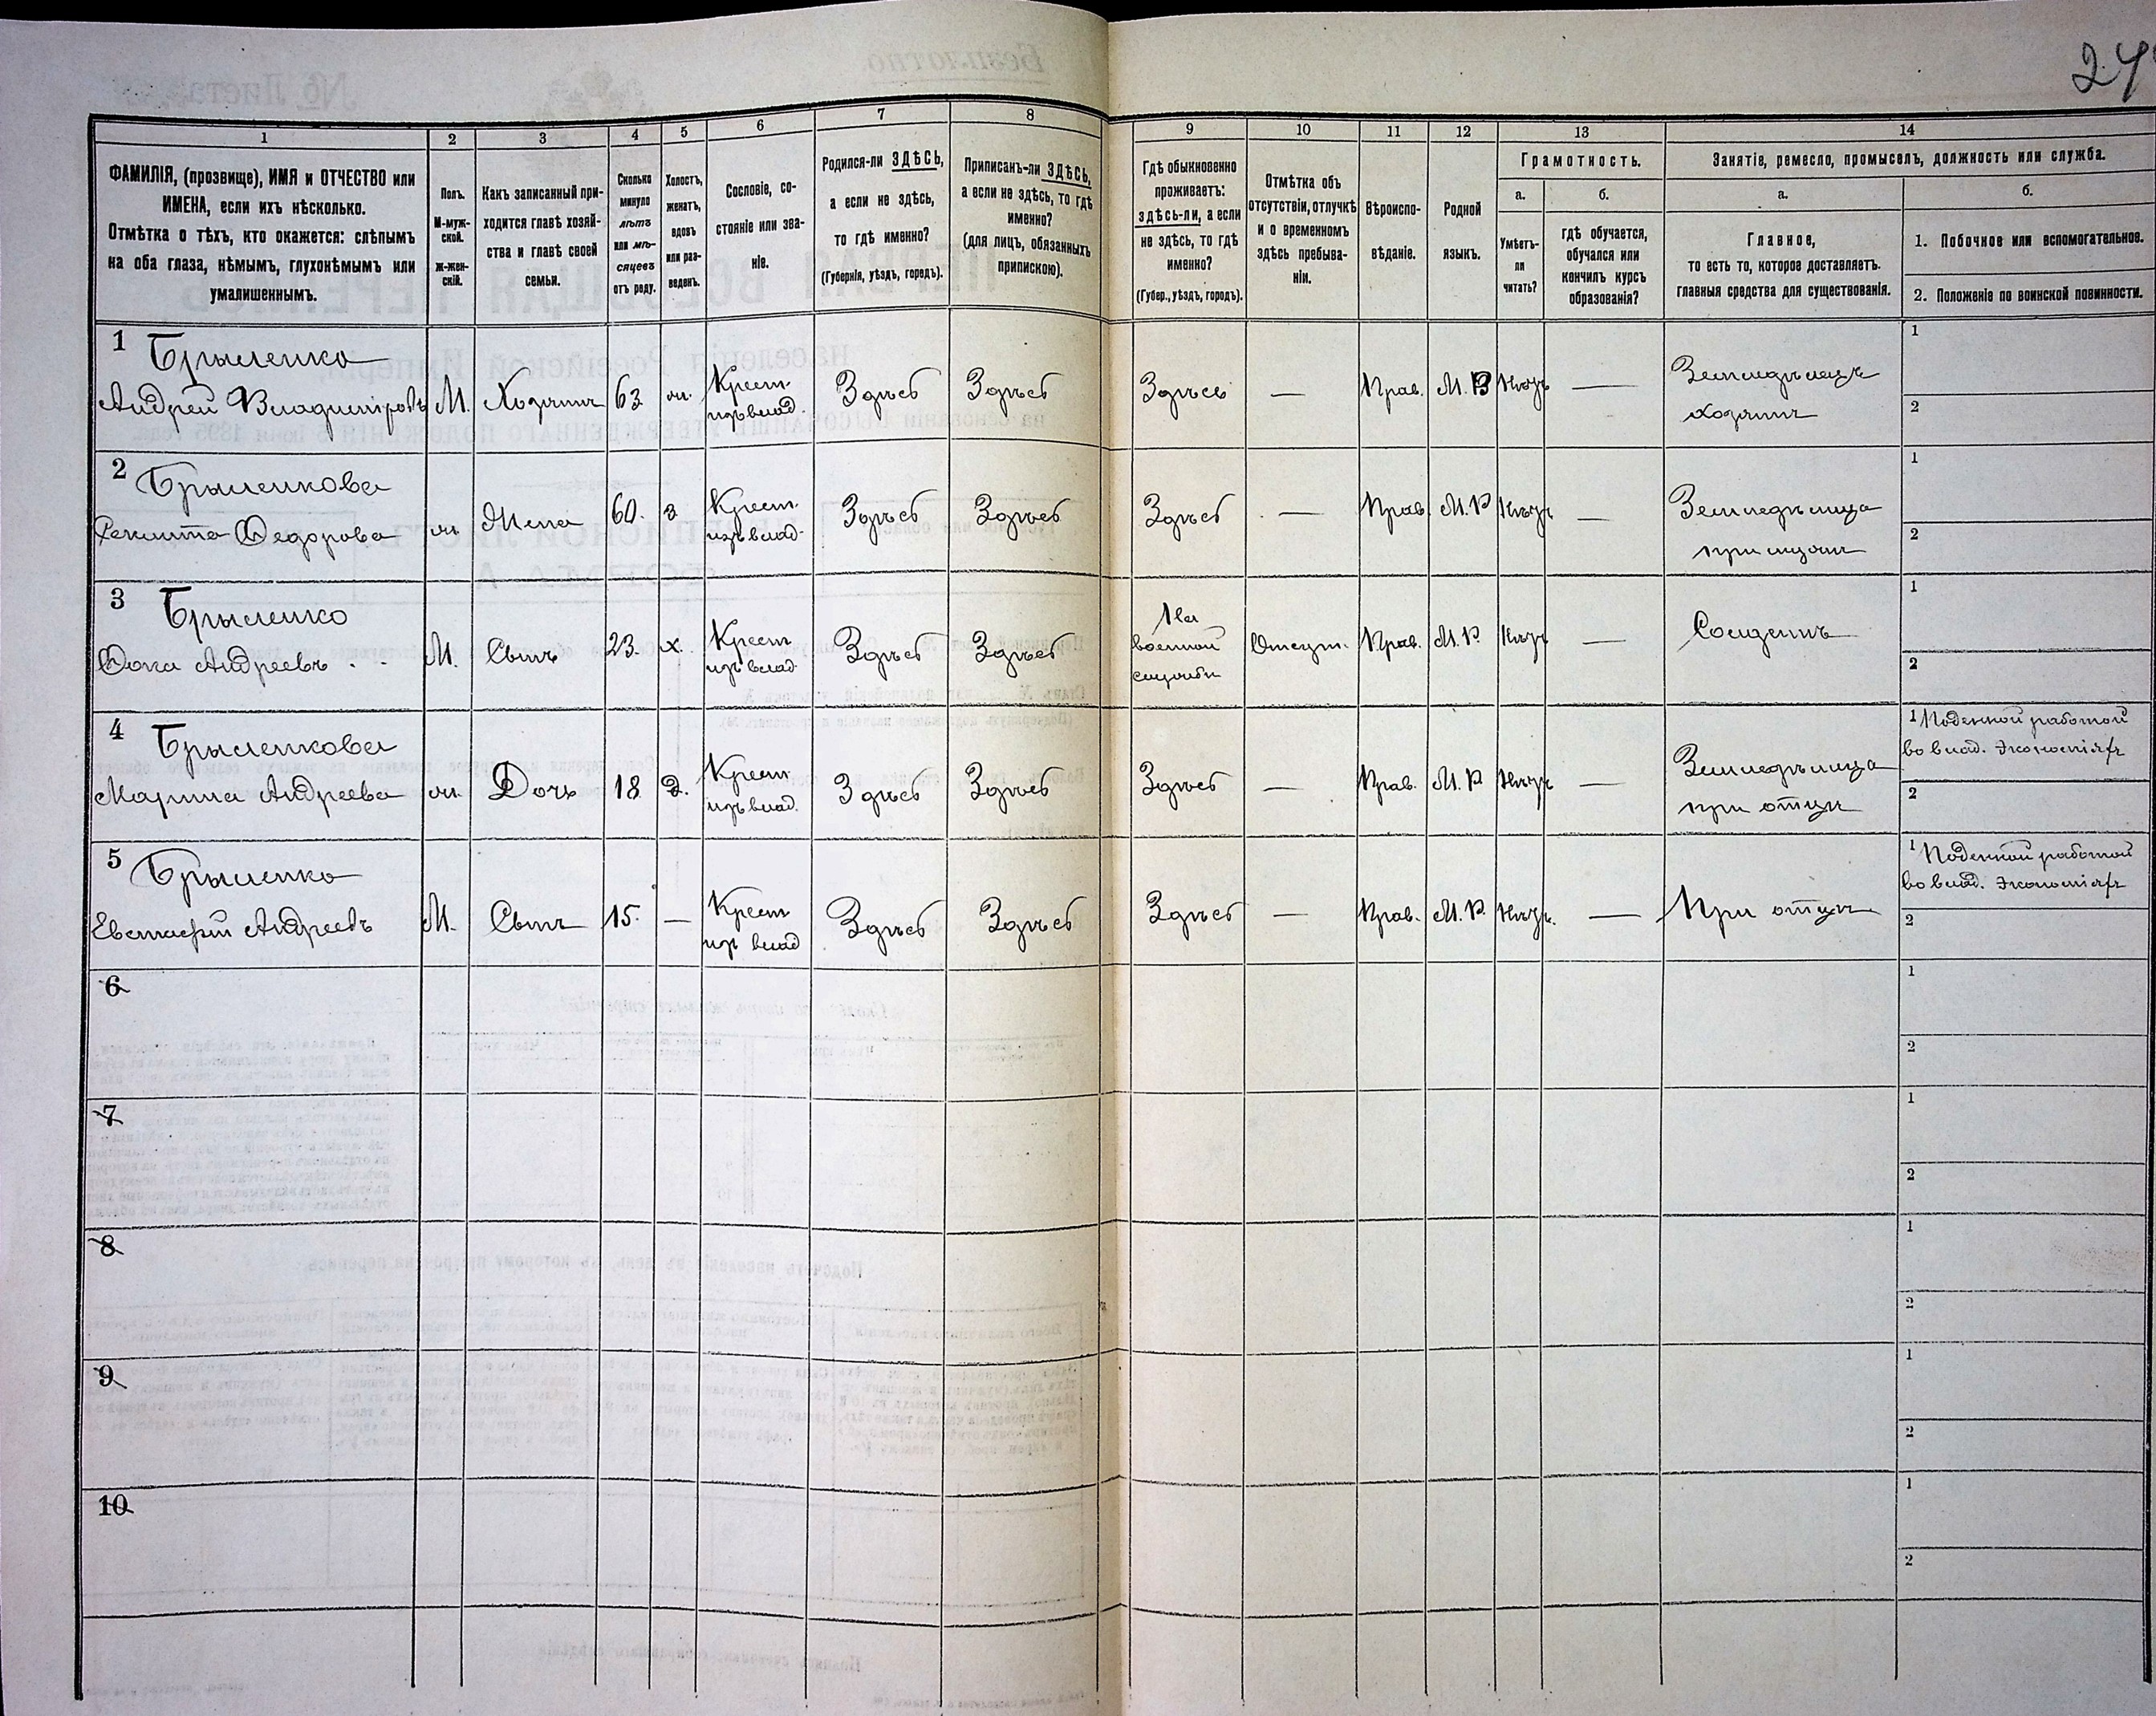 24
1
2
3
4
5
6
7
8
9
10
11
12
13
14
ФАМИЛІЯ, (прозвище), ИМЯ и ОТЧЕСТВО или
ИМЕНА, если ихъ нѣсколько.
Отмѣтка о тѣхъ, кто окажется: слѣпымъ
на оба глаза, нѣмымъ, глухонѣмымъ или
умалишеннымъ.
Полъ.
М-муж-
ской.
Ж-жен-
скій.
Какъ записанный при-
ходится главѣ хозяй-
ства и главѣ своей
семьи.
Сколько
минуло
лѣтъ
или мѣ-
сяцевъ
отъ роду.
Холостъ,
женатъ,
вдовъ
или раз-
веденъ.
Сословіе, со-
стояніе или зва-
ніе.
Родился-ли ЗДѢСЬ,
а если не здѣсь,
то гдѣ именно?
(Губернія, уѣздъ, городъ).
Приписанъ-ли ЗДѢСЬ,
а если не здѣсь, то гдѣ
именно?
(для лицъ, обязанныхъ
припискою).
Гдѣ обыкновенно
проживаетъ:
здѣсь-ли, а если
не здѣсь, то гдѣ
именно?
(Губер., уѣздъ, городъ).
Отмѣтка объ
отсутствіи, отлучкѣ
и о временномъ
здѣсь пребыва-
ніи.
Вѣроиспо-
вѣданіе.
Родной
языкъ.
Грамотность.
а.
Умѣетъ-
ли
читать?
б.
гдѣ обучается,
обучался или
кончилъ курсъ
образованія?
Занятіе, ремесло, промыселъ, должность или служба.
а.
Главное,
то есть то, которое доставляетъ
главныя средства для существованія.
б.
1. Побочное или вспомогательное.
2. Положеніе по воинской повинности.
1
Брыленко
Андрей Владиміровъ
М.
Хозяинъ
63
ж.
Крест.
изъ влад.
Здѣсь
Здѣсь
Здѣсь
—
Прав.
М. Р
Нѣтъ
—
Земледѣлецъ
хозяинъ
1
2
2
Брыленкова
Феодорова
ж
Жена
60.
з
Крест.
изъ влад.
Здѣсь
Здѣсь
Здѣсь
—
Прав
М. Р
Нѣтъ
—
Земледѣлица
при мужѣ
1
2
3
Брыленко
Фока Андреевъ
М.
Сынъ
23.
х.
Крест
изъ влад.
Здѣсь
Здѣсь
На
военной
службѣ
Отсут.
Прав.
М. Р.
Нѣтъ
—
Солдатъ
1
2
4
Брыленкова
Марина Андреева
ж
Дочь
18
Д.
Крест
изъ влад.
Здѣсь
Здѣсь
Здѣсь
—
Прав.
М. Р
Нѣтъ
—
Земледѣлица
при отцѣ
1 Поденной работой
во влад. Экономіяхъ
2
5
Брыленко
Евстафій Андреевъ
М.
Сынъ
15.
—
Крест
изъ влад
Здѣсь
Здѣсь
Здѣсь
—
Прав.
М. Р
Нѣтъ.
—
При отцѣ
1 Поденной работой
во влад. Экономіяхъ
2
6
1
2
7
1
2
8
1
2
9
1
2
10
1
2